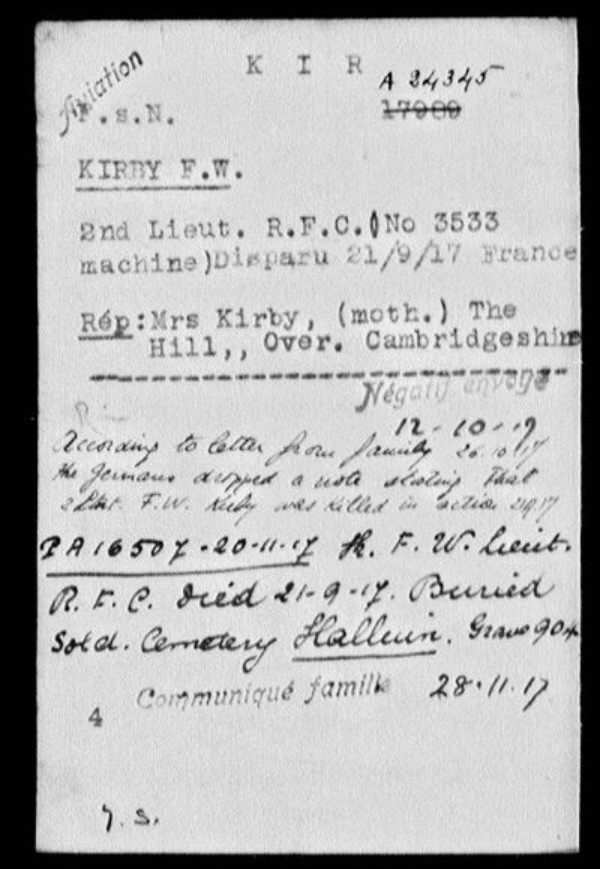 K I R
A 24345
17909
F.s.N.
KIRBY F.W.
2nd Lieut. R.F.C.(No 3533
machine)Disparu 21/9/17 France
Rép:Mrs Kirby, (moth.) The
Hill,, Over. Cambridgeshire
Négatif envoyé
12-10-17
According to letter from family 26.10.17
the Germans dropped a note stating that
2 Lieut. F.W. Kirby was killed in action 21.9.17
PA 16507-20-11-17 K. F. W. Lieut.
R.F.C. Died 21-9-17. Buried
Sold. Cemetery Halluin. Grave 904
Communiqué famille 28.11.17
4